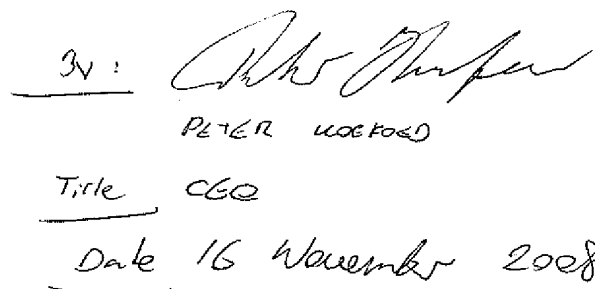 By:
PETER
Title CEO
Date 16 November 2008